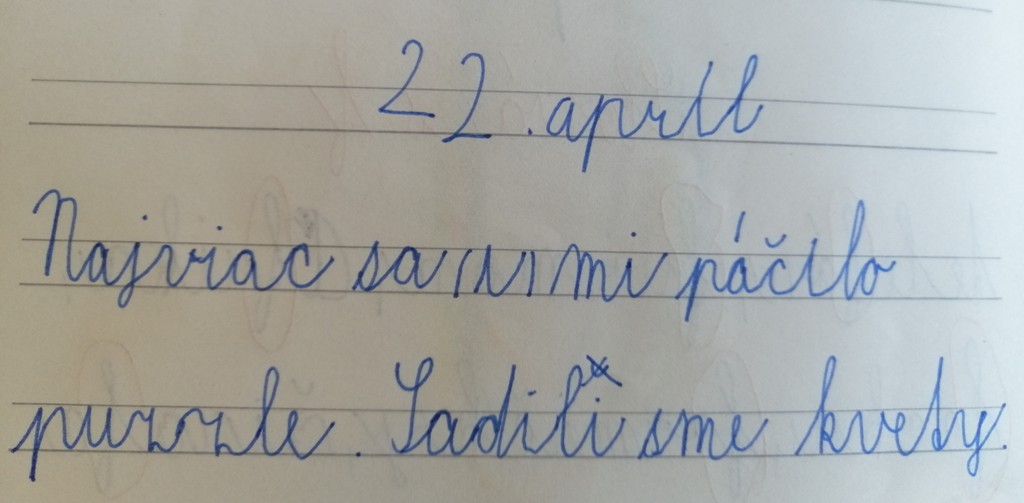 22. apríl
Najviac sa (n) mi páčilo
puzzle. Sadili sme kvety.